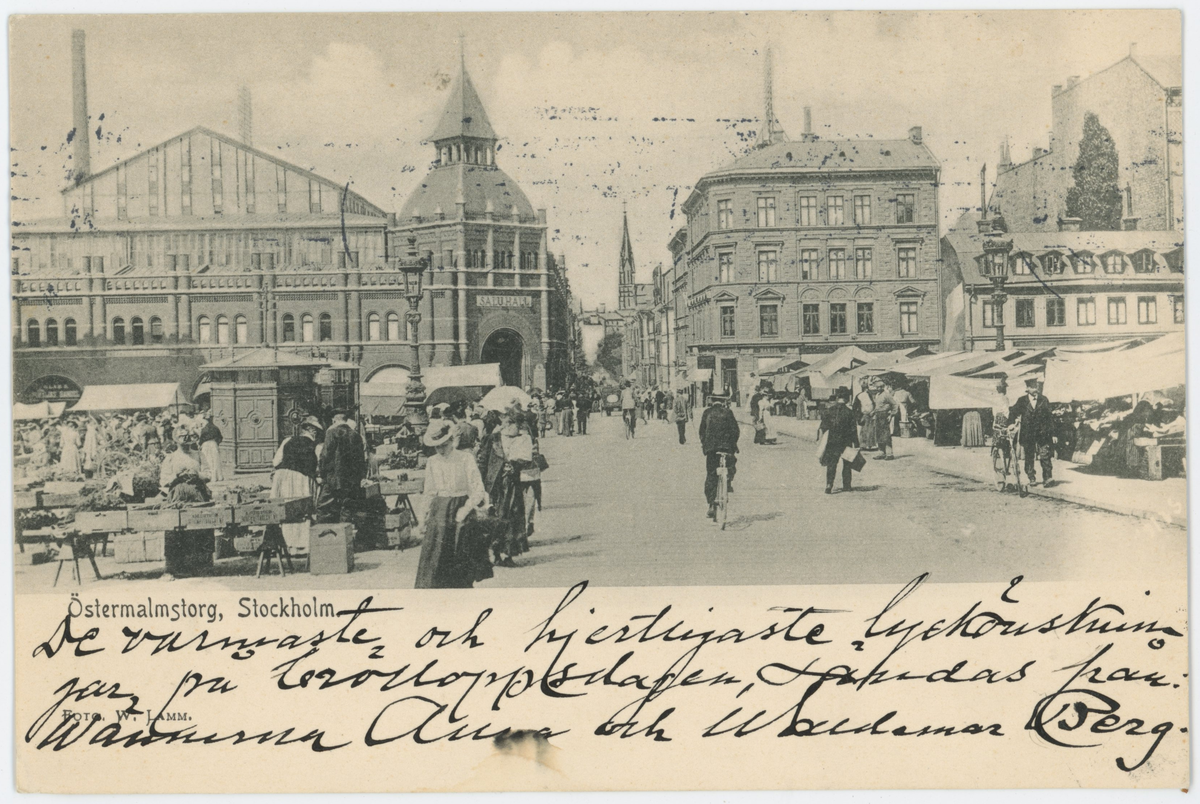 SALUHALL
Östermalmstorg, Stockholm
De varmaste och hjertligaste lyckönsknin-
jar, på brölloppsdagen, sändas från.
FOTO. W. LAMM.
Wännerna Anna och Waldemar Berg.